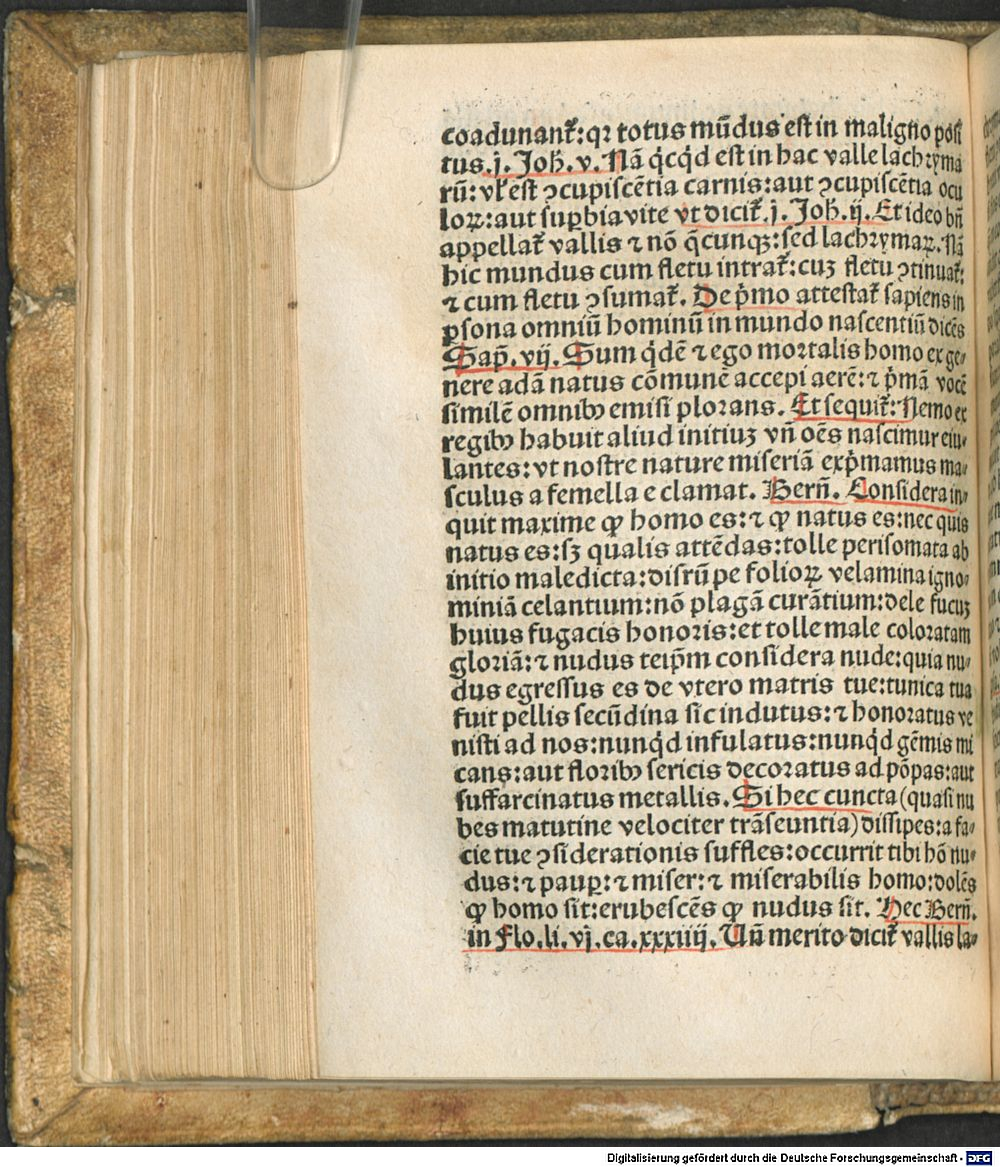 coadunant᷑: qꝛ totus mūdus est in maligno posi
tus. j. Joh̄. v. Nā q̇cq̇d est in hac valle lachryma
rū: vl̓ est ꝯcupiscētia carnis: aut ꝯcupiscētia ocu
loꝝ: aut suꝑbia vite vt dicit᷑. j. Joh̄. ij. Et ideo bn̄
appellat᷑ vallis ⁊ nō q̄cunqꝫ: sed lachrymaꝝ. Nā
hic mundus cum fletu intrat᷑: cuꝫ fletu ꝯtinuat᷑:
⁊ cum fletu ꝯsumat᷑. De p̄mo attestat᷑ sapiens in
ꝑsona omniū hominū in mundo nascentiū dicēs
Sap̄. vij. Sum q̇dē ⁊ ego mortalis homo ex ge⸗
nere adā natus cōmunē accepi aerē: ⁊ p̄mā vocē
similē omnibꝰ emisi plorans. Et sequit᷑: Nemo ex
regibꝰ habuit aliud initiuꝫ vn̄ oēs nascimur eiu⸗
lantes: vt nostre nature miseriā exp̄mamus ma⸗
sculus a femella e clamat. Bern̄. Considera in⸗
quit maxime ꝙ homo es: ⁊ ꝙ natus es: nec quis
natus es: sꝫ qualis attēdas: tolle perisomata ab
initio maledicta: disrūpe folioꝝ velamina igno⸗
miniā celantium: nō plagā curātium: dele fucuꝫ
huius fugacis honoris: et tolle male coloratam
gloriā: ⁊ nudus teip̄m considera nude: quia nu⸗
dus egressus es de vtero matris tue: tunica tua
fuit pellis secūdina sic indutus: ⁊ honoratus ve
nisti ad nos: nunq̇d infulatus: nunq̇d gēmis mi
cans: aut floribꝰ sericis decoratus ad pōpas: aut
suffarcinatus metallis. Si hec cuncta (quasi nu
bes matutine velociter trāseuntia) dissipes: a fa⸗
cie tue ꝯsiderationis suffles: occurrit tibi hō nu⸗
dus: ⁊ pauꝑ: ⁊ miser: ⁊ miserabilis homo: dolēs
ꝙ homo sit: erubescēs ꝙ nudus sit. Hec Bern̄.
in Flo. li. vj. ca. xxxiiij. Un̄ merito dicit᷑ vallis la⸗
Digitalisierung gefördert durch die Deutsche Forschungsgemeinschaft - DFG